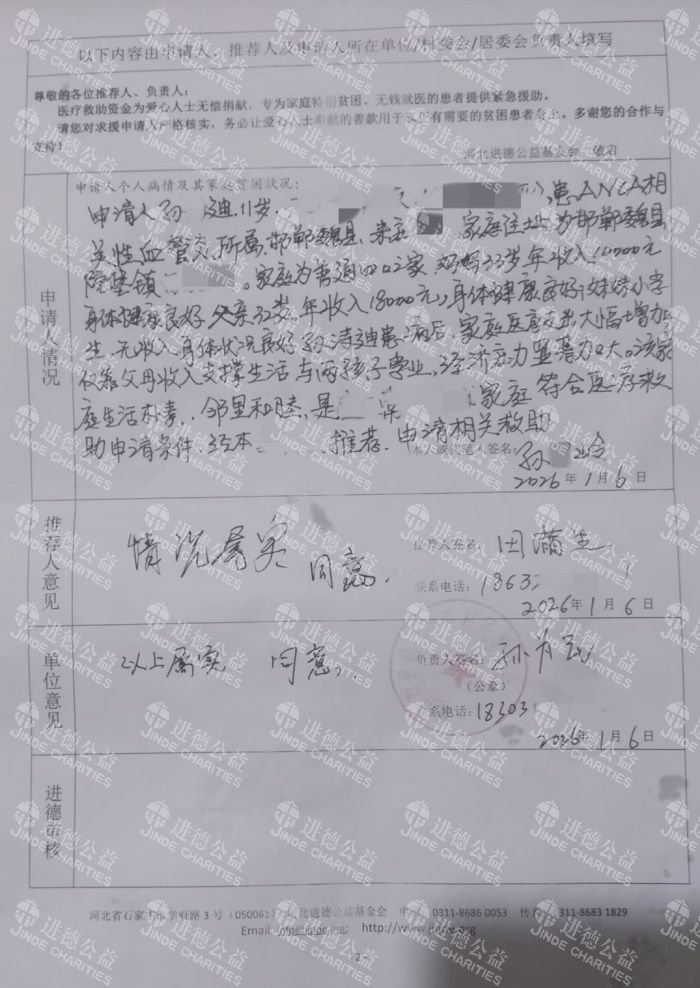 以下内容由申请人、推荐人及申请人所在单位/村委会/居委会负责人填写
尊敬的各位推荐人、负责人:
医疗救助资金为爱心人士无偿捐献,专为家庭特别贫困、无钱就医的患者提供紧急援助。
请您对求援申请人严格核实,务必让爱心人士奉献的善款用于真正有需要的贫困患者身上。多谢您的合作与
支持!
河北进德公益基金会 敬启
申请人情况
申请人个人病情及其家庭贫困状况:
申请人孙 迪,11岁. 患ANCA相
关性血管炎,所属邯郸魏县 家庭住址为邯郸魏县
院堡镇 。家庭为普通四口之家,妈妈33岁年收入12000元
身体健康良好,父亲32岁,年收入18000元,身体健康良好,妹妹小学
生,无收入,身体状况良好,孙诗迪患病后,家庭医疗支出大幅增加
仅靠父母收入支撑生活与两孩子学业,经济压力显著加大。该家
庭生活朴素,邻里和睦,是 家庭 符合医疗救
助申请条件.经本 推荐.申请相关救助
本人或代笔人签名: 孙
2026年1月6日
推荐人意见
情况属实 同意.
推荐人签名: 田满生
联系电话: 1863
2026年1月6日
单位意见
以上属实 同意.
负责人签名: 孙为民
(公章)
联系电话: 18303
2026年1月6日
进德审核
河北省石家庄市学府路3号(050061) 河北进德公益基金会 电话:0311-8686 0053 传真:0311-8683 1829
Email: info@jinde.org; http://www.jinde.org
- 2 -
进德公益
JINDE CHARITIES